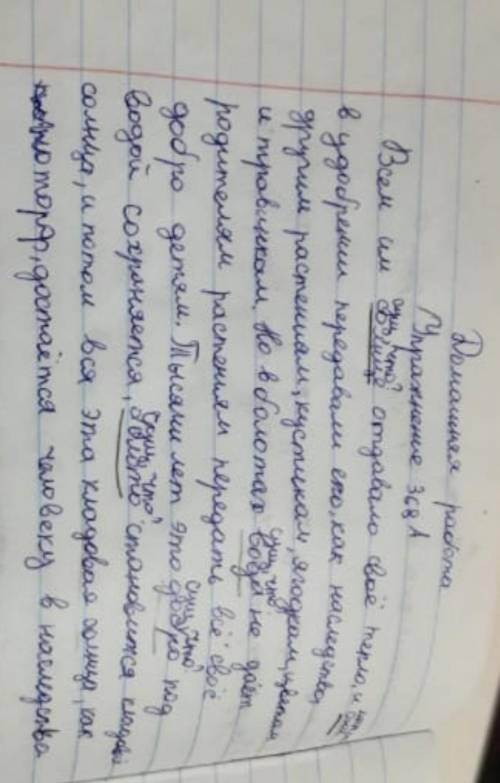 Домашняя работа
Упражнение 368 А
Всем им солнце отдавало своё тепло, и
в удобрении передавали его, как наследство,
другим растениям, кустикам, ягодкам, цветам
и травинкам. Но в болотах вода не даёт
родителям растениям передать всё своё
добро детям. Тысячи лет это добро под
водой сохраняется, болото становится кладовой
солнца, и потом вся эта кладовая солнца, как
торф, достаётся человеку в наследство